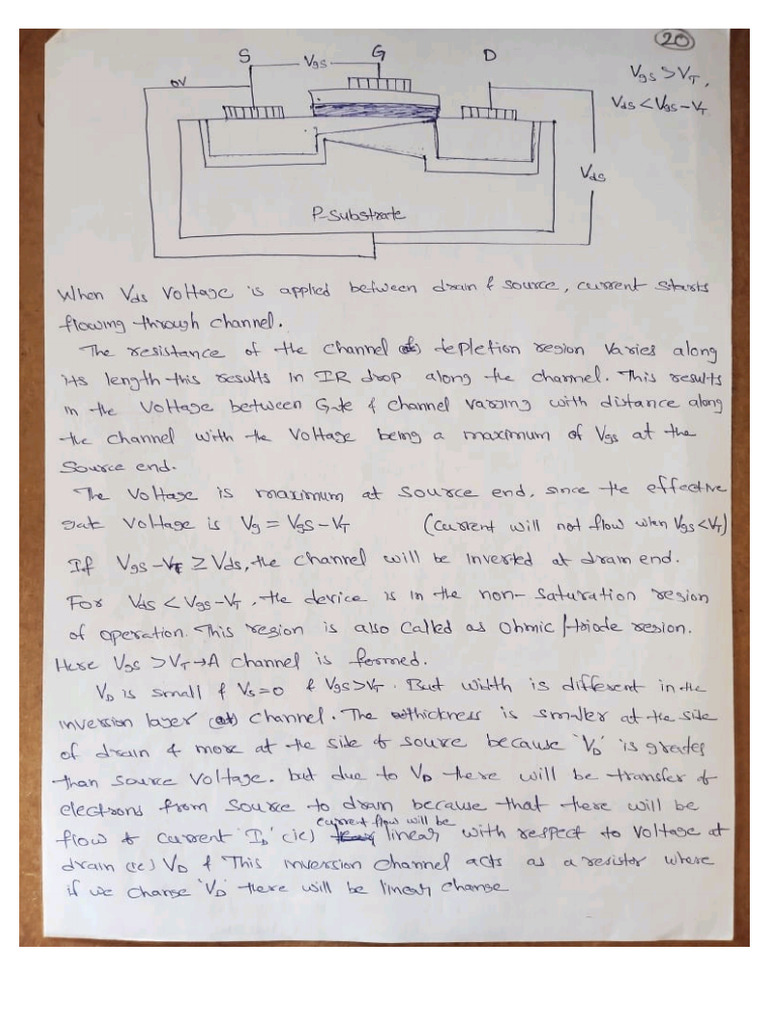 20
S Vgs G D
0V
Vgs > VT,
Vds < Vgs - VT
Vds
P-substrate
When Vds Voltage is applied between drain & source, current starts
flowing through channel.
The resistance of the channel (or) depletion region varies along
its length this results in IR drop along the channel. This results
in the Voltage between Gate & channel varying with distance along
the channel with the Voltage being a maximum of Vgs at the
Source end.
The Voltage is maximum at source end, since the effective
gate Voltage is Vg = Vgs - VT (current will not flow when Vgs < VT)
If Vgs - VT ≥ Vds, the channel will be inverted at drain end.
For Vds < Vgs - VT, the device is in the non-saturation region
of operation. This region is also called as Ohmic/triode region.
Here Vgs > VT → A channel is formed.
VD is small & Vs = 0 & Vgs > VT. But width is different in the
inversion layer (or) channel. The thickness is smaller at the side
of drain & more at the side of source because 'VD' is greater
than source Voltage. but due to VD there will be transfer of
electrons from source to drain because that there will be
current flow will be
flow of current 'ID' (ie) linear with respect to Voltage at
drain (ie) VD & This inversion channel acts as a resistor where
if we change 'VD' there will be linear change